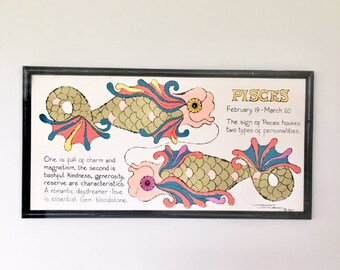 PISCES
February 19 · March 20
The sign of Pisces houses
two types of personalities.
One is full of charm and
magnetism, the second is
bashful. Kindness, generosity,
reserve are characteristics.
A romantic daydreamer · love
is essential. Gem · bloodstone.